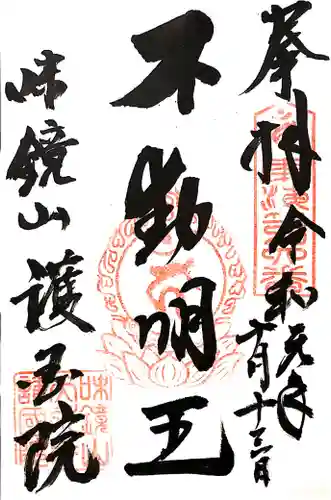 奉拝 令和元年十月十三日
不動明王
味鏡山 護国院